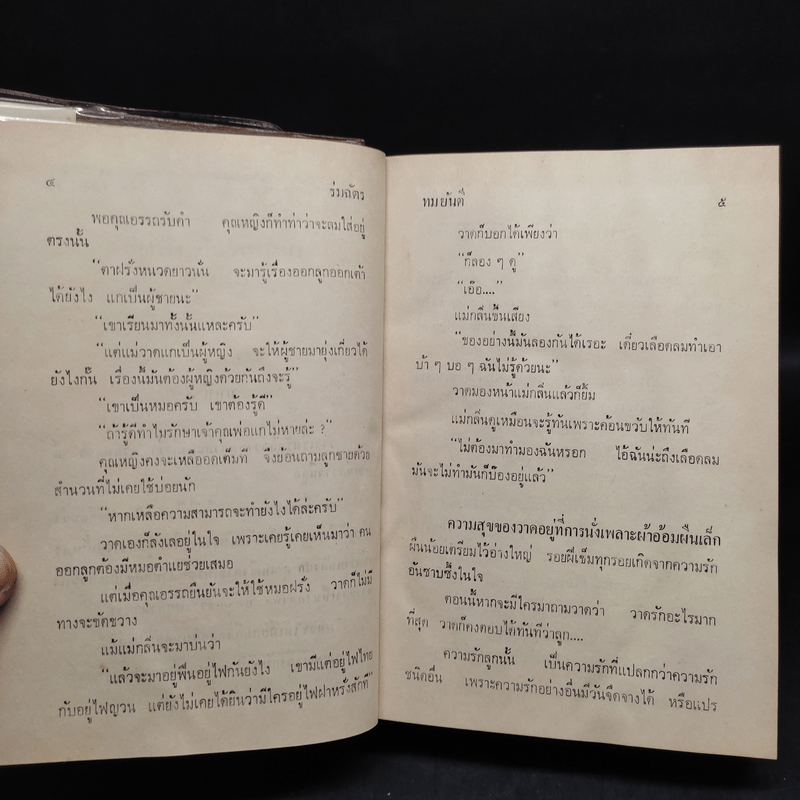 ๔
ร่มฉัตร
พอคุณอรรถรับคำ คุณหญิงก็ทำท่าว่าจะลมใส่อยู่
ตรงนั้น
“ตาฝรั่งหนวดยาวนั่น จะมารู้เรื่องออกลูกออกเต้า
ได้ยังไง แกเป็นผู้ชายนะ”
“เขาเรียนมาทั้งนั้นแหละครับ”
“แต่แม่วาดแกเป็นผู้หญิง จะให้ผู้ชายมายุ่งเกี่ยวได้
ยังไงกั๊น เรื่องนี้มันต้องผู้หญิงด้วยกันถึงจะรู้”
“เขาเป็นหมอครับ เขาต้องรู้ดี”
“ถ้ารู้ดีทำไมรักษาเจ้าคุณพ่อแกไม่หายล่ะ ?”
คุณหญิงคงจะเหลืออดเต็มที จึงย้อนถามลูกชายด้วย
สำนวนที่ไม่เคยใช้บ่อยนัก
“หากเหลือความสามารถจะทำยังไงได้ล่ะครับ”
วาดเองก็ลังเลอยู่ในใจ เพราะเคยรู้เคยเห็นมาว่า คน
ออกลูกต้องมีหมอตำแยช่วยเสมอ
แต่เมื่อคุณอรรถยืนยันจะให้ใช้หมอฝรั่ง วาดก็ไม่มี
ทางจะขัดขวาง
แม้แม่กลิ่นจะมาบ่นว่า
“แล้วจะมาอยู่ฟืนอยู่ไฟกันยังไง เขามีแต่อยู่ไฟไทย
กับอยู่ไฟญวน แต่ยังไม่เคยได้ยินว่ามีใครอยู่ไฟฝาหรั่งสักที”
ทมยันตี
๕
วาดก็บอกได้เพียงว่า
“ก็ลอง ๆ ดู”
“เอ๊อ....”
แม่กลิ่นขึ้นเสียง
“ของอย่างนี้มันลองกันได้เรอะ เดี๋ยวเลือดลมทำเอา
บ้า ๆ บอ ๆ ฉันไม่รู้ด้วยนะ”
วาดมองหน้าแม่กลิ่นแล้วก็ยิ้ม
แม่กลิ่นดูเหมือนจะรู้ทันเพราะค้อนขวับให้ทันที
“ไม่ต้องมาทำมองฉันหรอก ไอ้ฉันน่ะถึงเลือดลม
มันจะไม่ทำมันก็บ๊องอยู่แล้ว”
ความสุขของวาดอยู่ที่การนั่งเพลาะผ้าอ้อมผืนเล็ก
ผืนน้อยเตรียมไว้อ่างใหญ่ รอยฝีเข็มทุกรอยเกิดจากความรัก
อันซาบซึ้งในใจ
ตอนนี้หากจะมีใครมาถามวาดว่า วาดรักอะไรมาก
ที่สุด วาดก็คงตอบได้ทันทีว่าลูก....
ความรักลูกนั้น เป็นความรักที่แปลกกว่าความรัก
ชนิดอื่น เพราะความรักอย่างอื่นมีวันจืดจางได้ หรือแปร